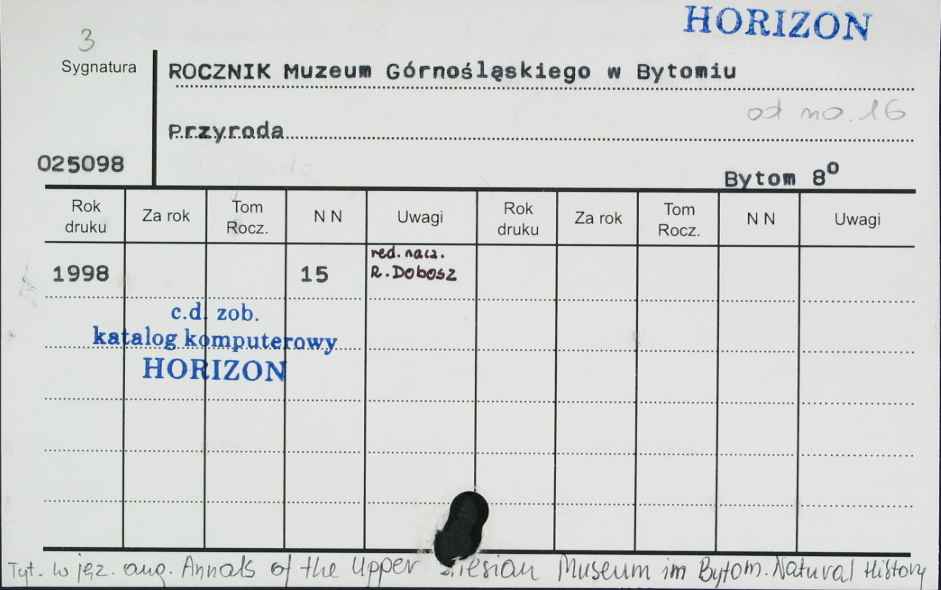 HORIZON
3
Sygnatura
ROCZNIK Muzeum Górnośląskiego w Bytomiu
od no. 16
Przyroda
025098
Bytom 8º
Rok druku Za rok Tom Rocz. N N Uwagi Rok druku Za rok Tom Rocz. N N Uwagi
red. nacz.
1998 15 R. Dobosz
c.d. zob.
katalog komputerowy
HORIZON
Tyt. w jęz. ang. Annals of the Upper Silesian Museum im Bytom. Natural History